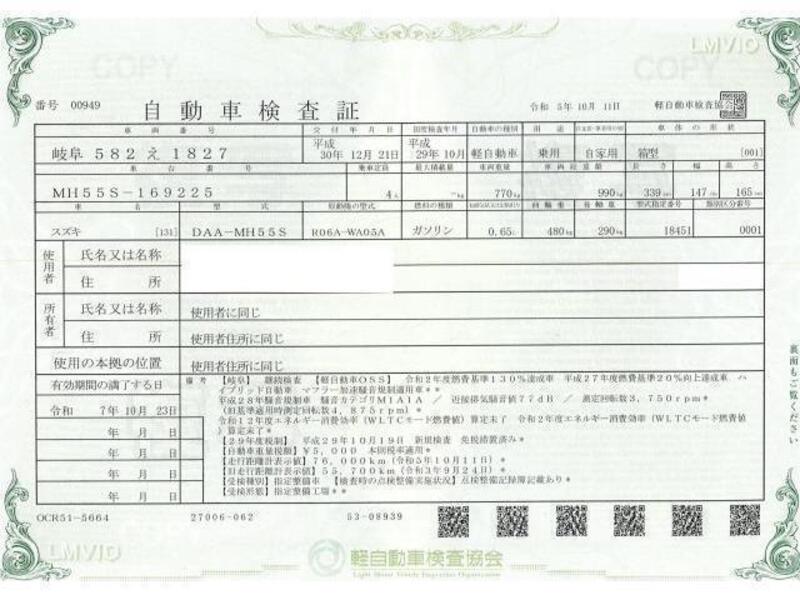 COPY COPY
LMVIO
番号 00949 自動車検査証 令和 5年 10月 11日 軽自動車検査協会
車両番号 交付年月日 初度検査年月 自動車の種別 用途 車体の形状
岐阜 582 え 1827 平成30年 12月 21日 平成29年 10月 軽自動車 乗用 自家用 箱型 [001]
車台番号 乗車定員 最大積載量 車両重量 車両総重量 長さ 幅 高さ
MH55S-169225 4人 -kg 770kg 990kg 339cm 147cm 165cm
車名 型式 原動機の型式 燃料の種類 前軸重 後軸重 型式指定番号 類別区分番号
スズキ [131] DAA-MH55S R06A-WA05A ガソリン 0.65L 480kg 290kg 18451 0001
使用者 氏名又は名称
住所
所有者 氏名又は名称 使用者に同じ
住所 使用者住所に同じ
使用の本拠の位置 使用者住所に同じ
有効期間の満了する日
令和 7年 10月 23日
年 月 日
年 月 日
年 月 日
年 月 日
備考 【岐阜】 継続検査 【軽自動車OSS】 令和2年度燃費基準130%達成車 平成27年度燃費基準20%向上達成車 ハ
イブリッド自動車 マフラー加速騒音規制適用車**
平成28年騒音規制車 騒音カテゴリM1A1A / 近接排気騒音値77dB / 測定回転数3,750rpm*
(旧基準適用時測定回転数4,875rpm)*
令和12年度エネルギー消費効率(WLTCモード燃費値)算定未了 令和2年度エネルギー消費効率(WLTCモード燃費値
)算定未了*
【29年度税制】 平成29年10月19日 新規検査 免税措置済み*
【自動車重量税額】¥5,000 本則税率適用*
【走行距離計表示値】76,000km(令和5年10月11日)*
【旧走行距離計表示値】55,700km(令和3年9月24日)*
【受検種別】指定整備車 【検査時の点検整備実施状況】点検整備記録簿記載あり*
【受検形態】指定整備工場**
裏面もご覧ください
OCR51-5664 27006-062 53-08939
LMVIO
軽自動車検査協会
Light Motor Vehicle Inspection Organization